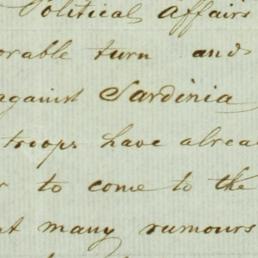 Political Affairs
orable turn and
against Sardinia
troops have alrea
r to come to the
t many rumours